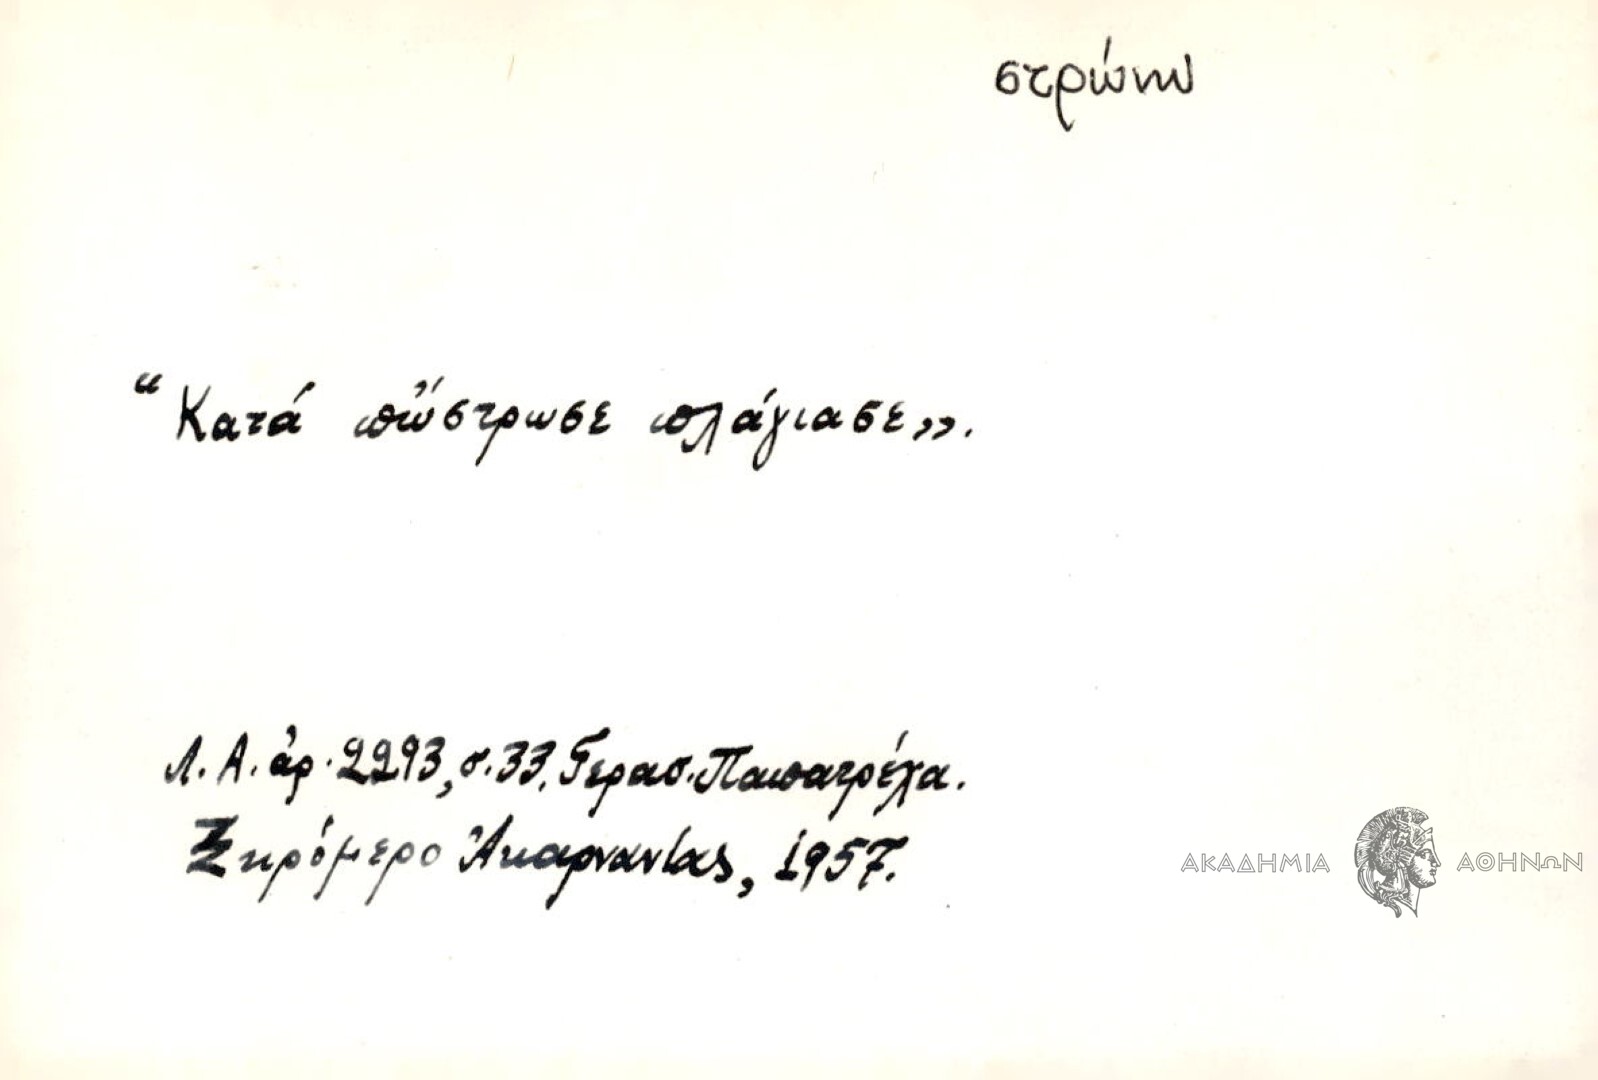 στρώνω
“Κατά πὤστρωσε πλάγιασε”.
Λ. Α. ἀρ. 2293, σ. 33, Γερασ. Παπατρέχα.
Ξηρόμερο Ἀκαρνανίας, 1957.
ΑΚΑΔΗΜΙΑ ΑΘΗΝΩΝ